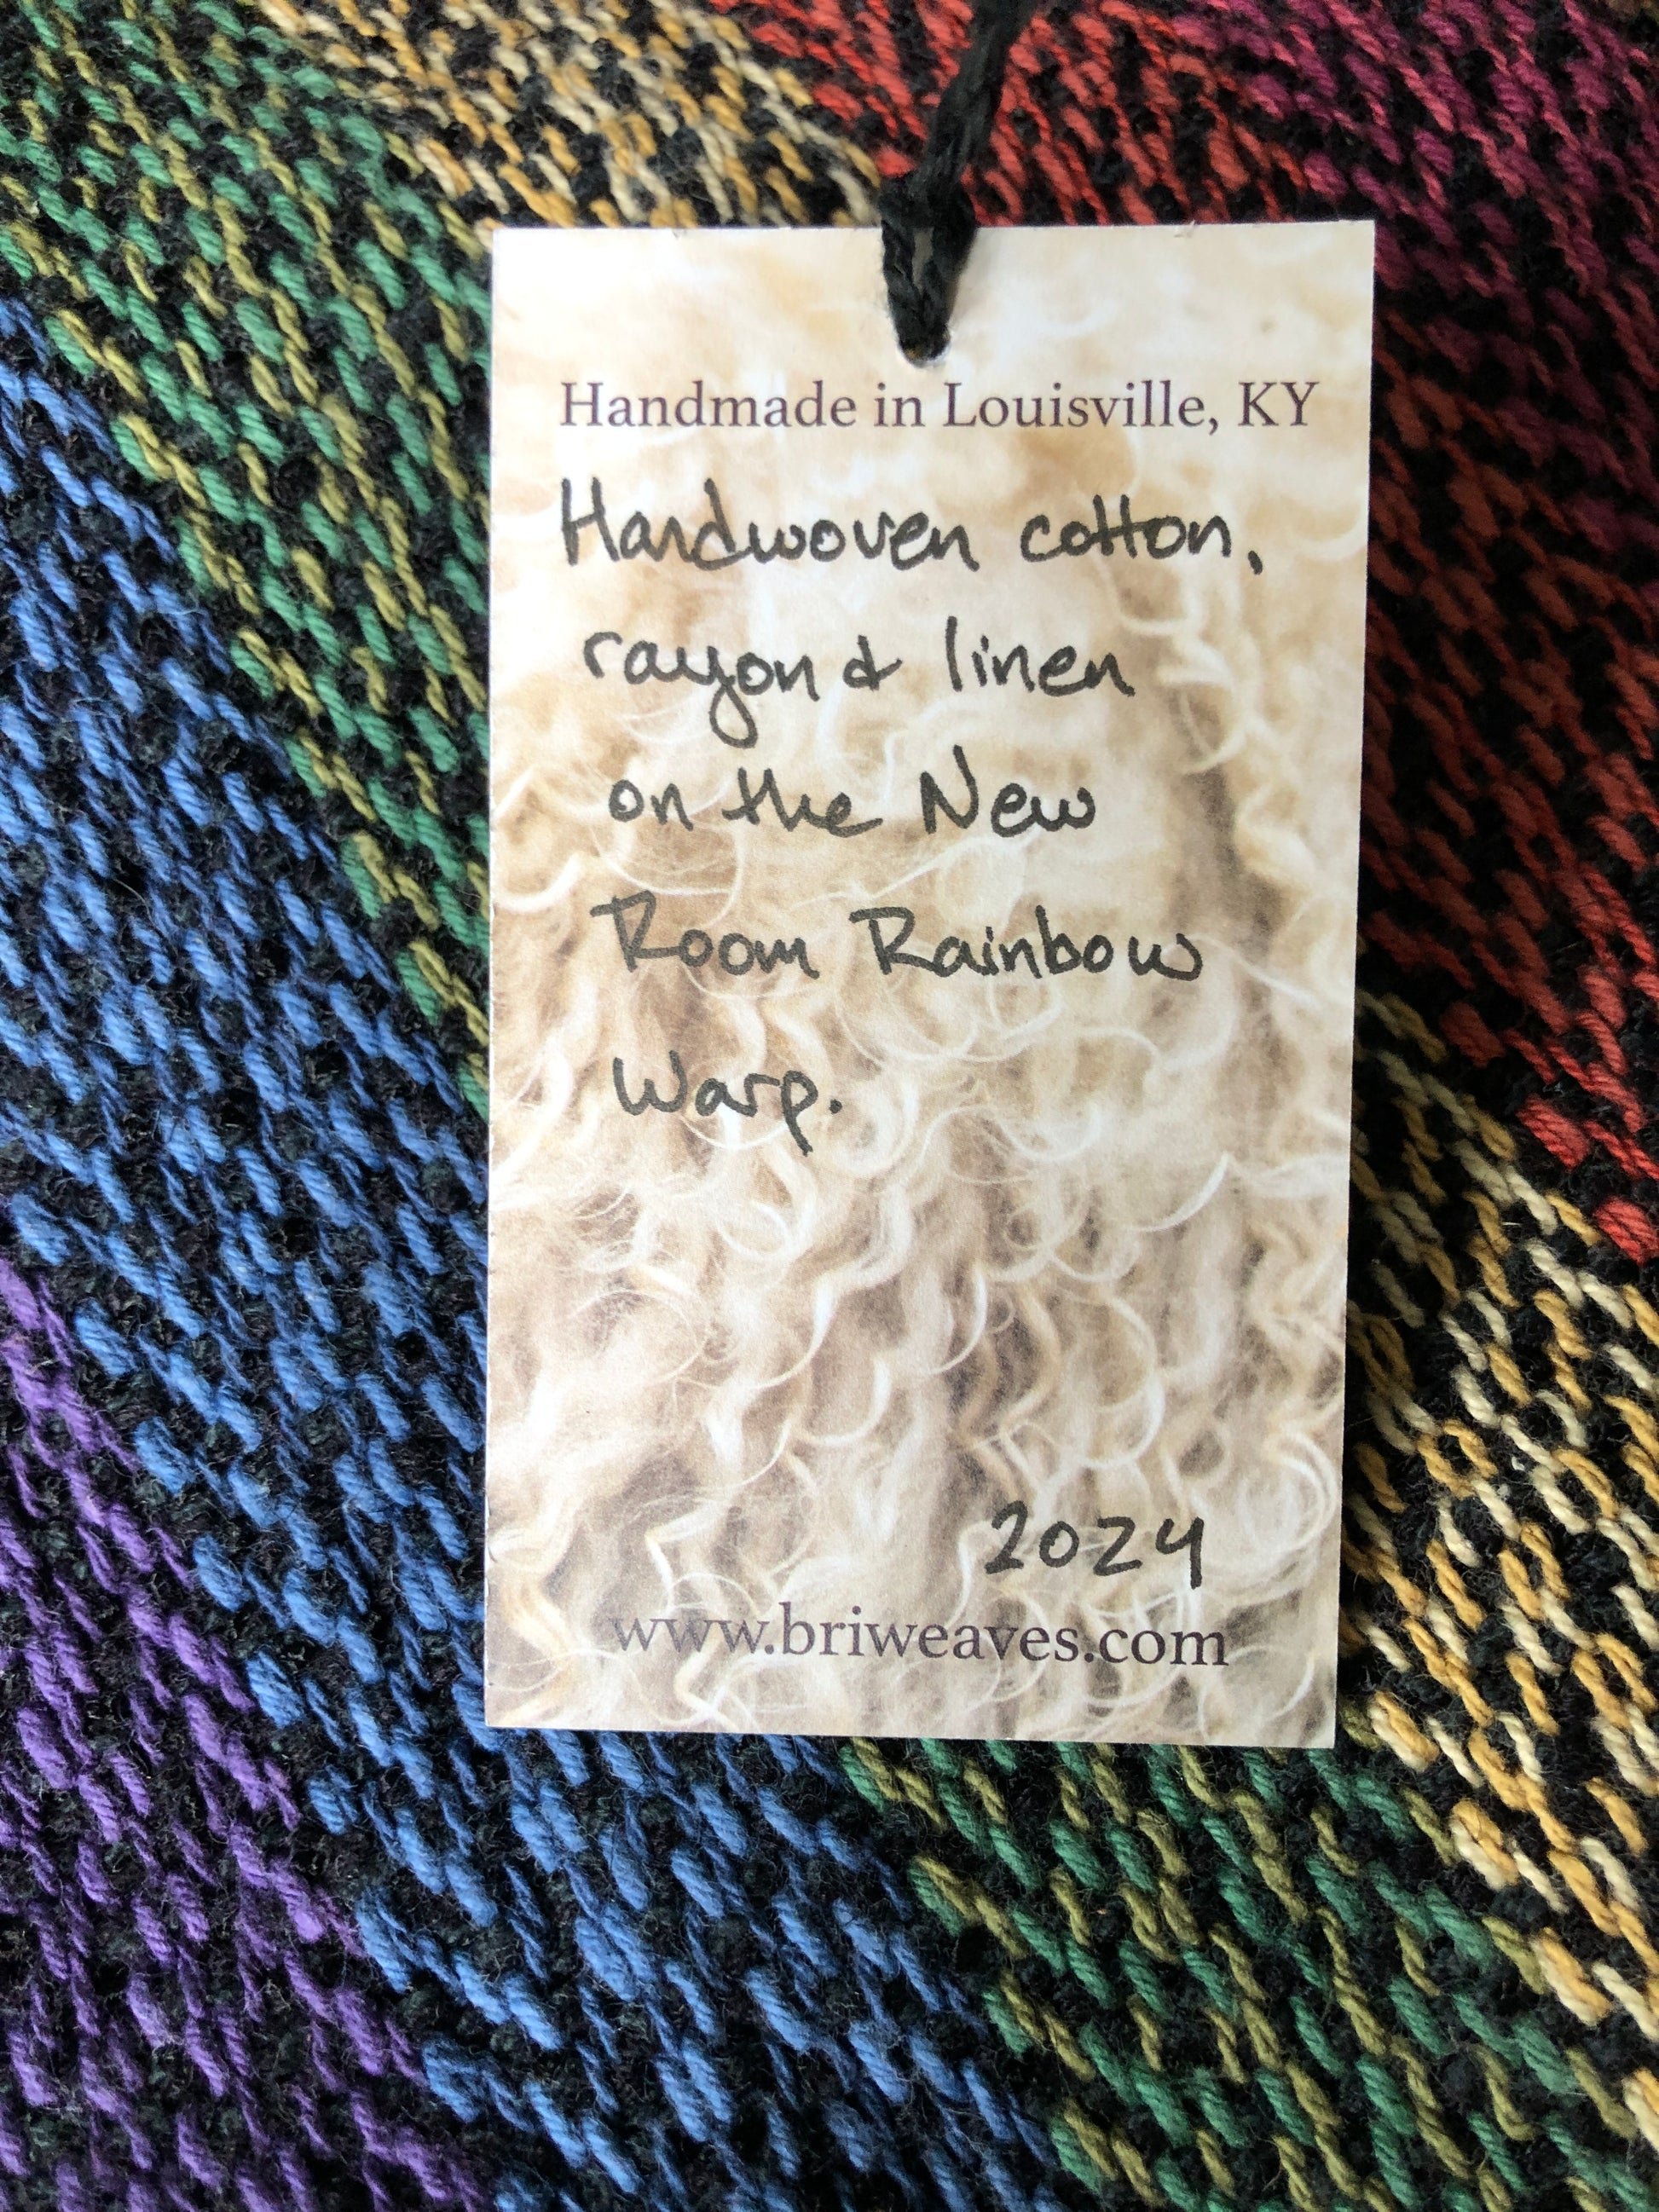 Handmade in Louisville, KY
Handwoven cotton,
rayon & linen
on the New
Room Rainbow
Warp.
2024
www.briweaves.com